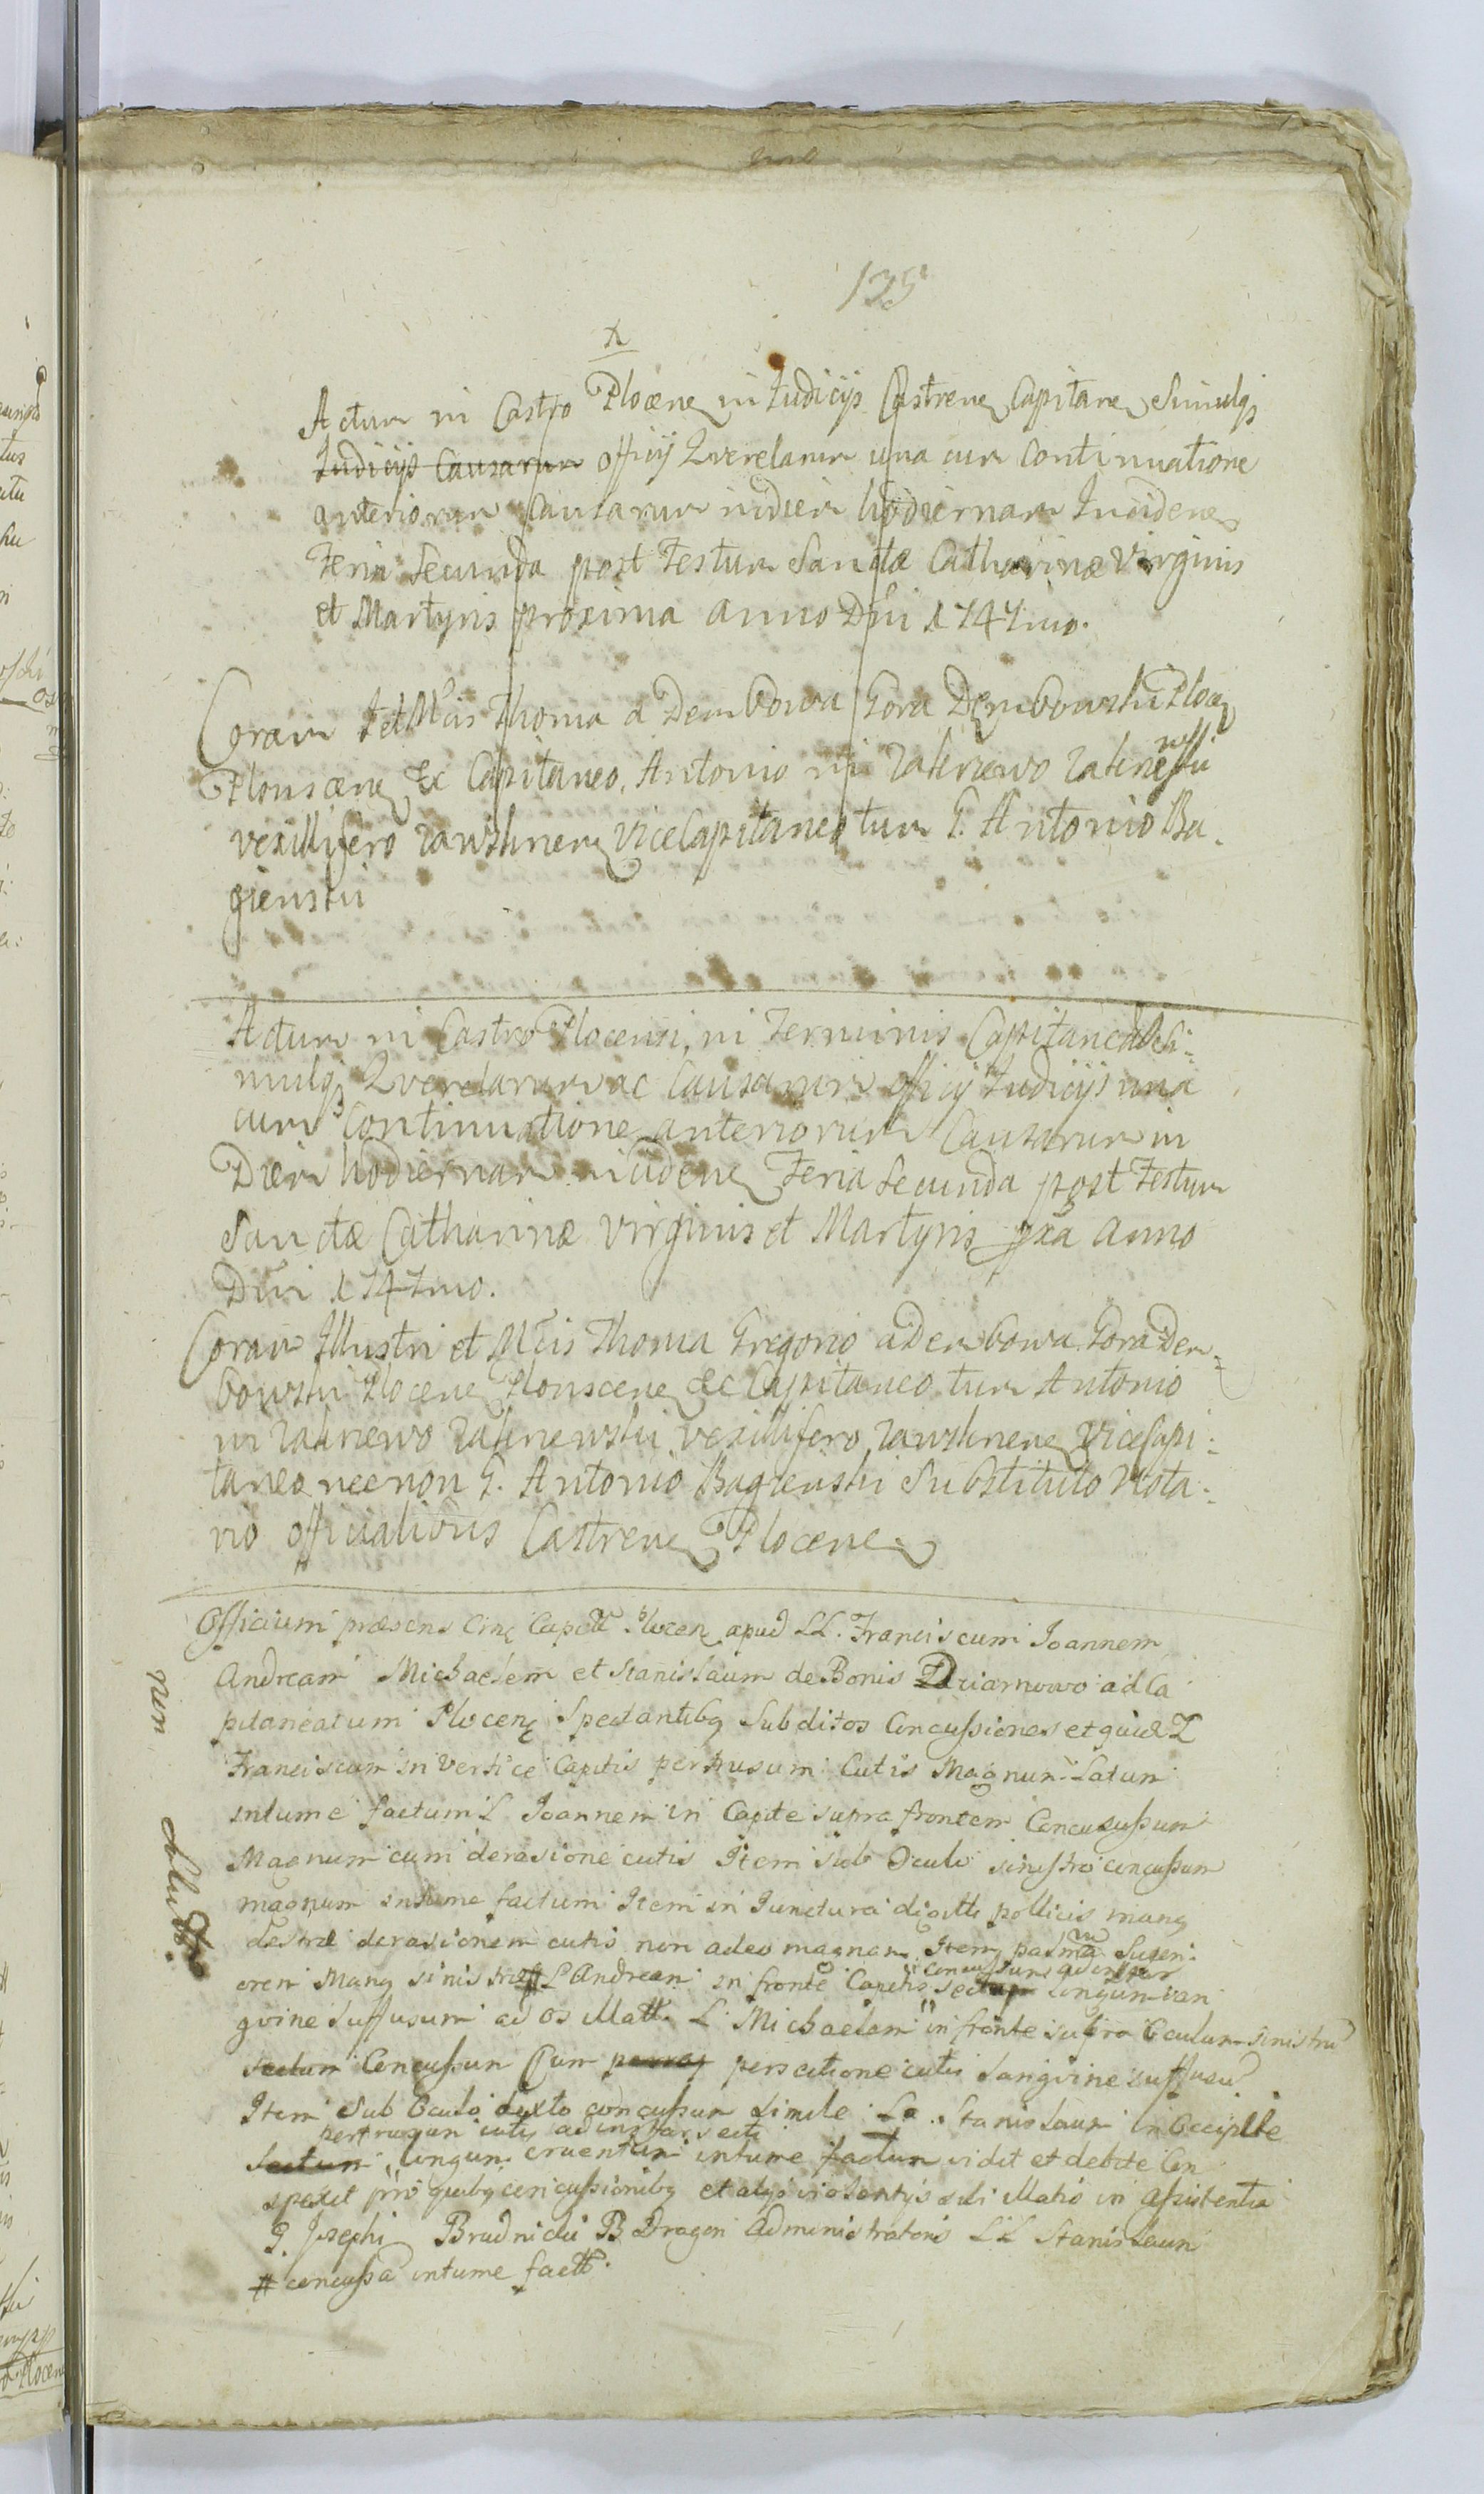 135
X
Actum in Castro Plocen in Judicijs Castren Capitan Simulq
Judicijs Causarum officij Querelarum una cum Continuatione
anteriorum Causarum in diem hodiernam Inciden
Feria Secunda post Festum Sanctæ Catharinæ Virginis
et Martyris proxima anno Dni 1747mo.
Coram I et Mcis Thoma a Dembowa Gora Dembowski Plocen
Plonscen &c Capitaneo, Antonio in Zalinewo Zalinewski
vexillifero Zawskrnen ViceCapitaneo tum G. Antonio Ba-
gienski
Actum in Castro Plocensi, in Terminis Capitaneal Si-
mulq Querelarum ac Causarum officij Judicijs una
cum Continuatione anteriorum Causarum in
Diem hodiernam inciden Feria Secunda post Festum
Sanctæ Catharinæ Virginis et Martyris pxa anno
Dni 1747mo.
Coram Illustri et Mcis Thoma Gregorio a Dembowa Gora Dem-
bowski Plocen Plonscen &c Capitaneo tum Antonio
in Zalinewo Zalinewski vexillifero Zawskrnen ViceCapi-
taneo necnon G. Antonio Bagienski Substituto Nota-
rio officialibus Castren Plocen
Officium præsens Capitl Plocen apud LL. Franciscum Joannem
Andream Michaelem et Stanislaum de Bonis ad Ca
pitaneatum Plocen Spectantibq Subditos Concussiones et quid L
Franciscum in Vertice Capitis pertusum Cutis Magnum Latum
intume factum L Joannem in Capite supra frontem Concussum
Magnum cum derasione cutis Item sub Oculo sinistro concussum
magnum intume factum Item in Junctura digiti pollicis manq
dextræ derasionem cutis non adeo magnam Item palma Superi
orem Manq sinistræ # L Andream in fronte Capitis sectum concussum adinstar longum san
gvine suffusum ad os illatt. L. Michaelem in fronte supra Oculum sinistru
sectum Concussum Cum persectione cutis Sangvine suffusu
Item Sub Oculo dexto concussum simile La. Stanislaum in Occipite
pertrusum cutis adinstar secti
Sectum longum cruentum intume factum vidit et debite Con
spexit pro quibq concussionibq et alijs violentijs sibi illatis in assistentia
G. Josephi Brudnicki B Dragon Administratoris LL Stanislaum
# concussa intume factt.